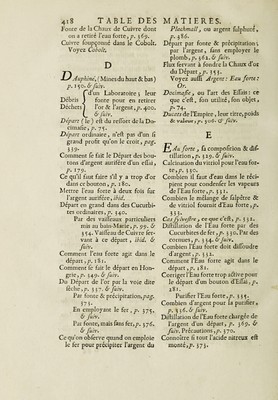 418 TABLE DES MATIERES.
Fonte de la Chaux de Cuivre dont
on a retiré l'eau forte, p. 369.
Cuivre soupçonné dans le Cobolt.
Voyez Cobolt.
D
Dauphiné, (Mines du haut & bas)
p. 150. & suiv.
Débris
Déchets
d'un Laboratoire ; leur
fonte pour en retirer
l'or & l'argent, p. 400.
& suiv.
Départ (le) est du ressort de la Do-
cimasie, p. 75.
Départ ordinaire, n'est pas d'un si
grand profit qu'on le croit, pag.
339.
Comment se fait le Départ des bou-
tons d'argent aurifére d'un essai,
p. 179.
Ce qu'il faut faire s'il y a trop d'or
dans ce bouton, p. 180.
Mettre l'eau forte à deux fois sur
l'argent aurifére, ibid.
Départ en grand dans des Cucurbi-
tes ordinaires, p. 340.
Par des vaisseaux particuliers
mis au bain-Marie, p. 96. &
354. Vaisseau de Cuivre ser-
vant à ce départ, ibid. &
suiv.
Comment l'eau forte agit dans le
départ, p. 181.
Comment se fait le départ en Hon-
grie, p. 349. & suiv.
Du Départ de l'or par la voie dite
séche, p. 357. & suiv.
Par fonte & précipitation, pag.
373.
En employant le fer, p. 375.
& suiv.
Par fonte, mais sans fer, p. 376.
& suiv.
Ce qu'on observe quand on emploie
le fer pour précipiter l'argent du
Plachmall, ou argent sulphuré,
p. 386.
Départ par fonte & précipitation
par l'argent, sans employer le
plomb, p. 362. & suiv.
Flux servant à fondre la Chaux d'or
du Départ, p. 353.
Voyez aussi Argent : Eau forte :
Or.
Docimasie, ou l'art des Essais : ce
que c'est, son utilité, son objet,
p. 74.
Ducats de l'Empire, leur titre, poids
& valeur, p. & suiv.
E
Eau forte, sa composition & dis-
tillation, p. 329. & suiv.
Calcination du vitriol pour l'eau for-
te, p. 330.
Combien il faut d'eau dans le réci-
pient pour condenser les vapeurs
de l'Eau forte, p. 331.
Combien le mélange de salpêtre &
de vitriol fournit d'Eau forte, p.
333.
Gas sylvestre, ce que c'est, p. 332.
Distillation de l'Eau forte par des
Cucurbites de fer, p. 330. Par des
cornues, p. 334. & suiv.
Combien l'Eau forte doit dissoudre
d'argent, p. 332.
Comment l'Eau forte agit dans le
départ, p. 181.
Corriger l'Eau forte trop active pour
le départ d'un bouton d'Essai, p.
281.
Purifier l'Eau forte, p. 335.
Combien d'argent pour la purifier,
p. 336. & suiv.
Distillation de l'Eau forte chargée de
l'argent d'un départ, p. 369. &
suiv. Précautions, p. 370.
Connoître si tout l'acide nitreux est
monté, p. 373.